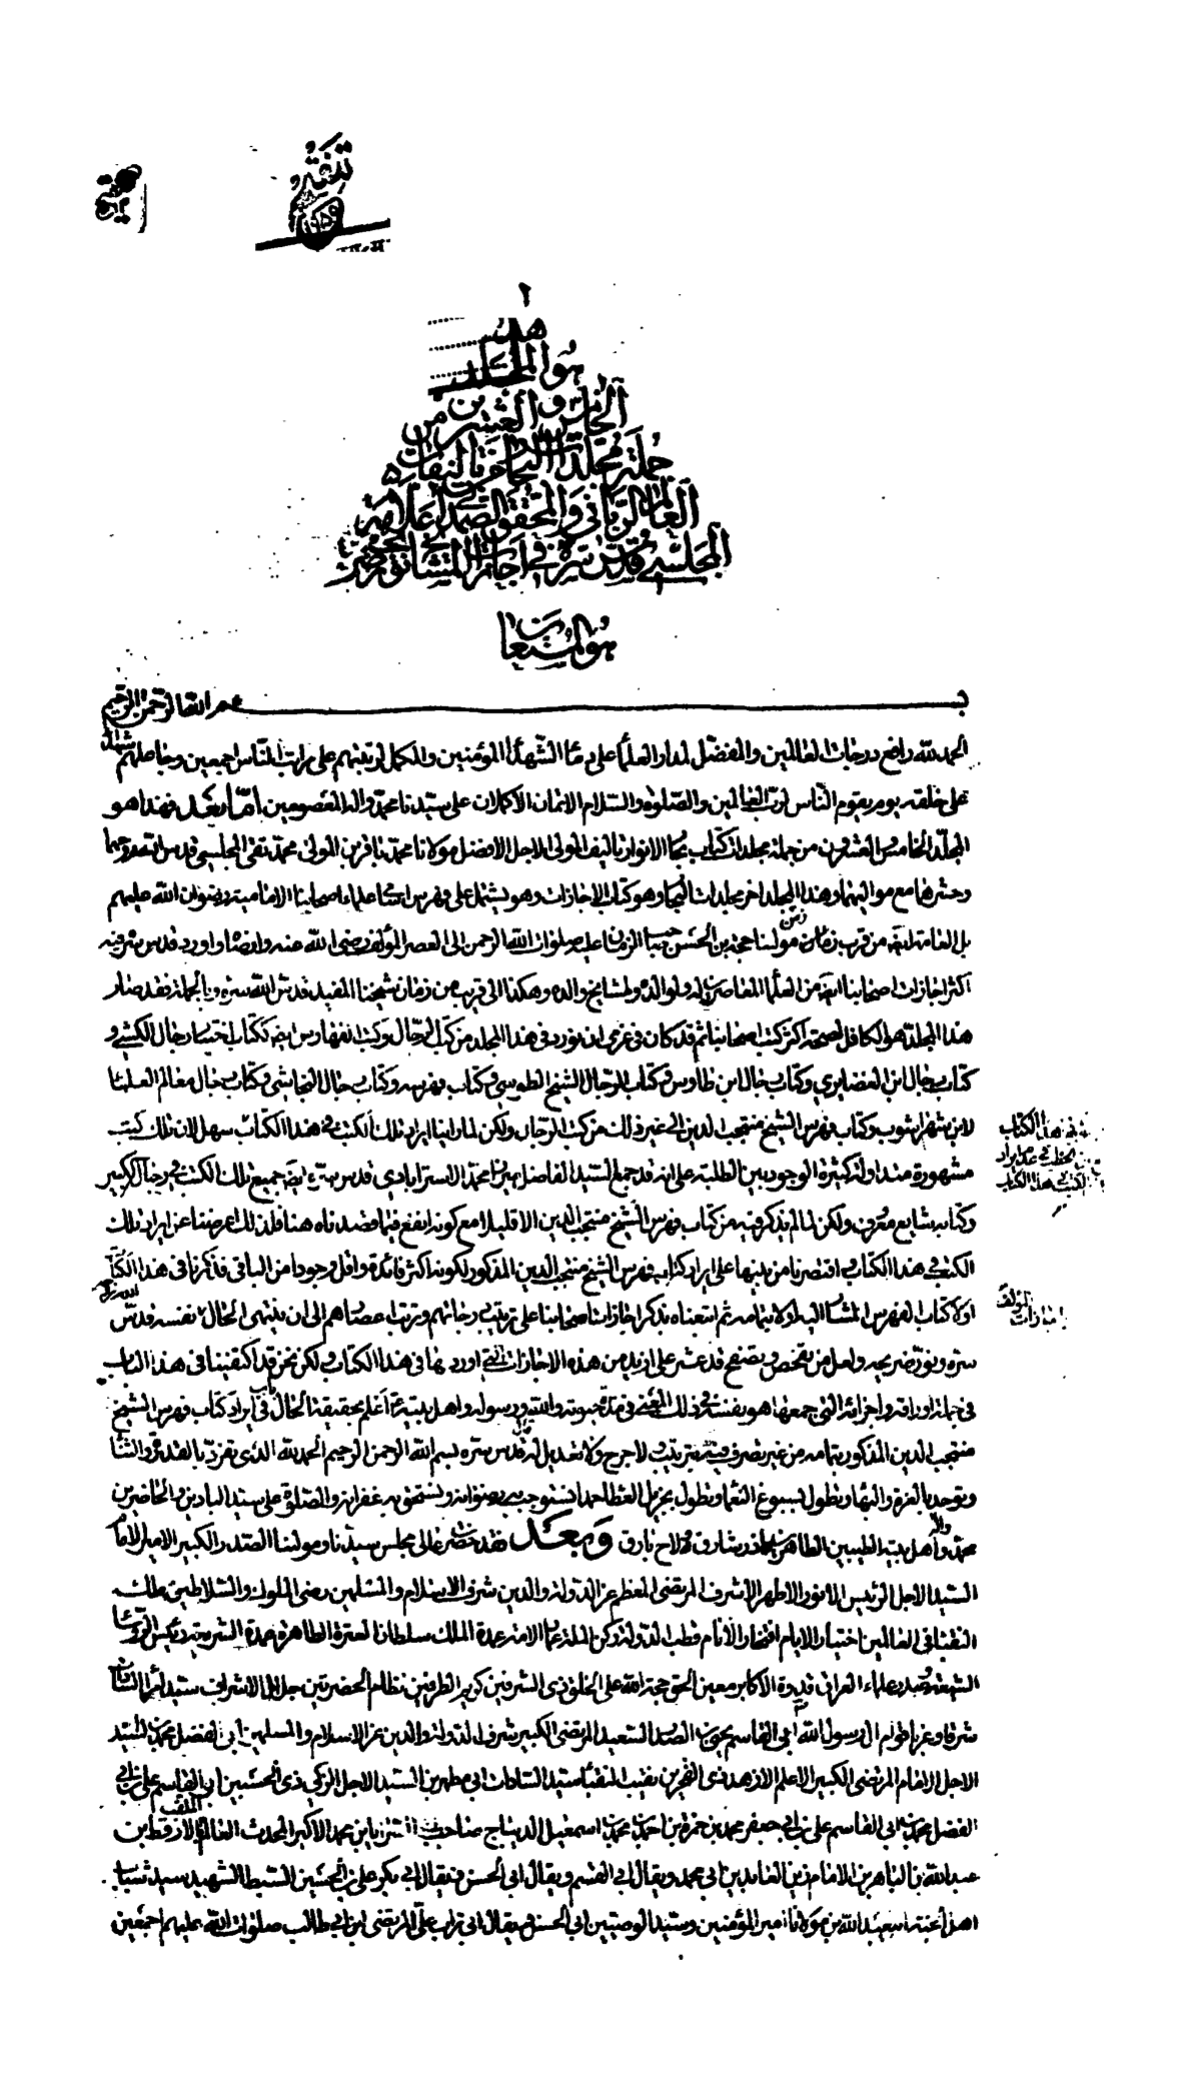 هذا
هو المجلد
الخامس والعشرين من
جملة مجلدات البحار من تاليفات
العالم الرباني والمحقق الصمداني علامة
المجلسي قدس سره في اجازات المشايخ
هو المستعان
بسم الله الرحمن الرحيم
الحمد لله رافع درجات العالمين والمفضل لمداد العلماء على دماء الشهداء المؤمنين والمكمل لرتبتهم على مراتب الناس اجمعين وجاعلهم شهداء
على خلقه يوم يقوم الناس لرب العالمين والصلوة والسلام الاتمان الاكملان على سيدنا محمد واله المعصومين اما بعد فهذا هو
المجلد الخامس والعشرون من جملة مجلدات كتاب بحار الانوار تاليف المولى الاجل الافضل مولانا محمد باقر بن المولى محمد تقي المجلسي قدس الله روحهما
وحشرهما مع مواليهما وهذا المجلد اخر مجلدات البحار وهو كتاب الاجازات وهو يشتمل على فهرس اسامي علماء اصحابنا الامامية رضوان الله عليهم
بل العامة ايضا من قرب زمان مولينا حجة بن الحسن صاحب الزمان عليه صلوات الله الرحمن الى العصر المؤلف رضي الله عنه وارضاه واورد قدس سره فيه
اكثر اجازات اصحابنا ايضا من العلماء المعاصرين له ولوالده ولمشايخ والده وهكذا الى قريب من زمان شيخنا المفيد قدس الله سره وبالجملة فقد صار
هذا المجلد هو الكافل لصحة اكثر كتب اصحابنا ثم قد كان في عزمي ان نورد في هذا المجلد من كتب الرجال وكتب الفهارس ايضا ككتاب اختيار رجال الكشي و
كتاب رجال ابن الغضايري وكتاب رجال ابن طاوس وكتاب الرجال الشيخ الطوسي وكتاب فهرسه وكتاب رجال النجاشي وكتاب رجال معالم العلماء
لابن شهراشوب وكتاب فهرس الشيخ منتجب الدين الى غير ذلك من كتب الرجال ولكن لما راينا ايراد تلك الكتب في هذا الكتاب سهل لان تلك كتب
مشهورة متداولة كثيرة الوجود بين الطلبة على انه قد جمع السيد الفاضل ميرزا محمد الاسترابادي قدس سره ايضا جميع تلك الكتب في رجاله الكبير
وكتابه شايع معروف ولكن لما لم يذكر فيه من كتاب فهرس الشيخ منتجب الدين الا قليلا مع كونه انفع فيما قصدناه هنا فلذلك اعرضنا عن ايراد تلك
الكتب في هذا الكتاب واقتصرنا من بينها على ايراد كتاب فهرس الشيخ منتجب الدين المذكور لكونه اكثر فائدة واقل وجودا من الباقي فذكرنا في هذا الكتاب
اولا كتاب الفهرس المشار اليه اولا بتمامه ثم اتبعناه بذكر اجازات اصحابنا على ترتيب درجاتهم وترتب اعصارهم الى ان ينتهي الحال نفسه قدس
سره ونور ضريحه ولعل من يفحص ويتصفح قد عثر على ازيد من هذه الاجازات التي اوردها في هذا الكتاب ولكن نحن قد اكتفينا في هذا الباب
في جملة اوراقه واجزائه التي جمعها هو بنفسه في ذلك المعنى في مدة حيوته والله ورسوله واهل بيته اعلم بحقيقة الحال باب في ايراد كتاب فهرس الشيخ
منتجب الدين المذكور بتمامه من غير تصرف فيه بترتيب ولا جرح ولا تعديل له قدس سره بسم الله الرحمن الرحيم الحمد لله الذي تفرد بالقدرة والثناء
وتوحد بالعزة والبهاء وتطول بسبوغ النعماء وتطول بجزيل العطا حمدا نستوجب به رضوانه ونستحق به غفرانه والصلوة على سيد البادين والحاضرين
محمد واله واهل بيته الطيبين الطاهرين ما ذر شارق ولاح بارق وبعد فقد حضرت عالي مجلس سيدنا ومولينا الصدر الكبير الامير الامام
السيد الاجل الرئيس الانور الاطهر الاشرف المرتضى المعظم عز الدولة والدين شرف الاسلام والمسلمين رضي الملوك والسلاطين ملك
النقباء في العالمين اختيار الايام افتخار الانام قطب الدولة ركن الملة عماد الامة عمدة الملك سلطان العترة الطاهرة عمدة الشريعة رئيس الرؤساء
الشيعة صدر علماء العراق قدوة الاكابر معين الحق حجة الله على الخلق ذي الشرفين كريم الطرفين نظام الحضرتين جلال الاشراف سيد امراء السادات
شرقا وغربا قوام ال رسول الله ابي القاسم يحيى بن الصدر السعيد المرتضى الكبير شرف الدولة والدين عز الاسلام والمسلمين ابي الفضل محمد بن السيد
الاجل الامام المرتضى الكبير الاعلم الازهد ذي الفخرين نقيب النقباء سيد السادات ابي مطهر بن السيد الاجل الزكي ذي الحسبين ابي القاسم علي بن ابي
الفضل محمد بن ابي القاسم علي بن ابي جعفر محمد بن حمزة بن احمد بن محمد بن اسمعيل الديباج صاحب ابن محمد الاكبر المحدث العالم الملقب الارقط ابن
عبد الله بن الباهر بن الامام زين العابدين ابي محمد ويقال ابي القسم ويقال ابي الحسن ويقال ابي بكر علي بن الحسين السبط الشهيد سيد شباب
اهل الجنة ابي عبد الله بن مولانا امير المؤمنين وسيد الوصيين ابي الحسن ويقال ابي تراب علي المرتضى ابن ابي طالب صلوات الله عليهم اجمعين